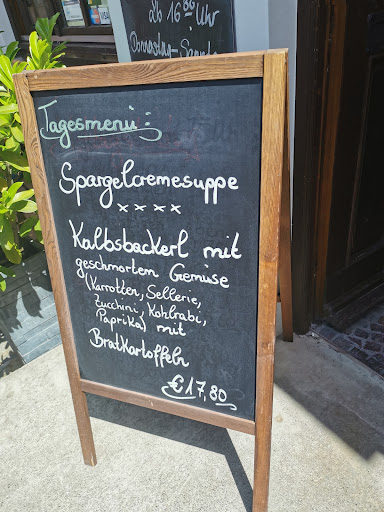 ab 16 00 Uhr
Tagesmenü:
Spargelcremesuppe
x x x x
Kalbsbackerl mit
geschmortem Gemüse
(Karotten, Sellerie,
Zucchini, Kohlrabi,
Paprika) mit
Bratkartoffeln
€ 17,80